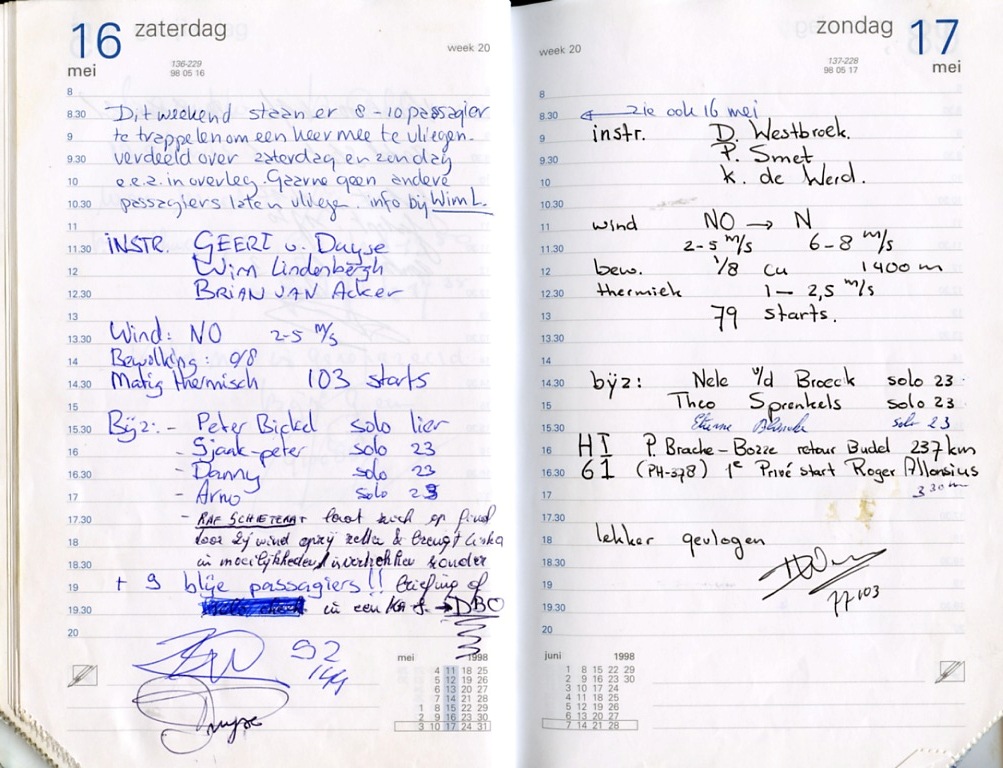 16 zaterdag
mei
week 20
136-229
98 05 16
8
8.30 Dit weekend staan er 8 - 10 passagier
9 te trappelen om een keer mee te vliegen.
9.30 verdeeld over zaterdag en zondag
10 e.e.a. in overleg. Gaarne geen andere
10.30 passagiers laten vliegen. info bij Wim L.
11
11.30 INSTR. GEERT v. Duyse
12 Wim Lindenbergh
12.30 BRIAN VAN Acker
13
13.30 Wind: NO 2-5 m/s
14 Bewolking: 0/8
14.30 Matig thermisch 103 starts
15
15.30 Bijz: - Peter Bickel solo lier
16 - Sjank-peter solo 23
16.30 - Danny solo 23
17 - Arno solo 23
17.30 - RAF SCHIETERAT laat zich op
18 door zij wind & brengt
18.30 in moeilijkheden zonder
19 + 9 blije passagiers!! briefing of
19.30 in een KA 8. → DBO
20
92
144
Duyse
mei 1998
4 11 18 25
5 12 19 26
6 13 20 27
7 14 21 28
1 8 15 22 29
2 9 16 23 30
3 10 17 24 31
zondag 17
mei
week 20
137-228
98 05 17
8
8.30 zie ook 16 mei
9 instr. D. Westbroek.
9.30 P. Smet
10 K. de Werd.
10.30
11 wind NO → N
11.30 2-5 m/s 6-8 m/s
12 bew. 1/8 cu 1400 m
12.30 thermiek 1 - 2,5 m/s
13 79 starts.
13.30
14
14.30 bijz: Nele v/d Broeck solo 23
15 Theo Sprenkels solo 23
15.30 Etienne solo 23
16 HI P. Brache - Bozze retour Budel 237 km
16.30 61 (PH-378) 1e Privé start Roger Allonsius
17 330 m
17.30
18 lekker gevlogen
18.30
19
19.30 77103
20
juni 1998
1 8 15 22 29
2 9 16 23 30
3 10 17 24
4 11 18 25
5 12 19 26
6 13 20 27
7 14 21 28